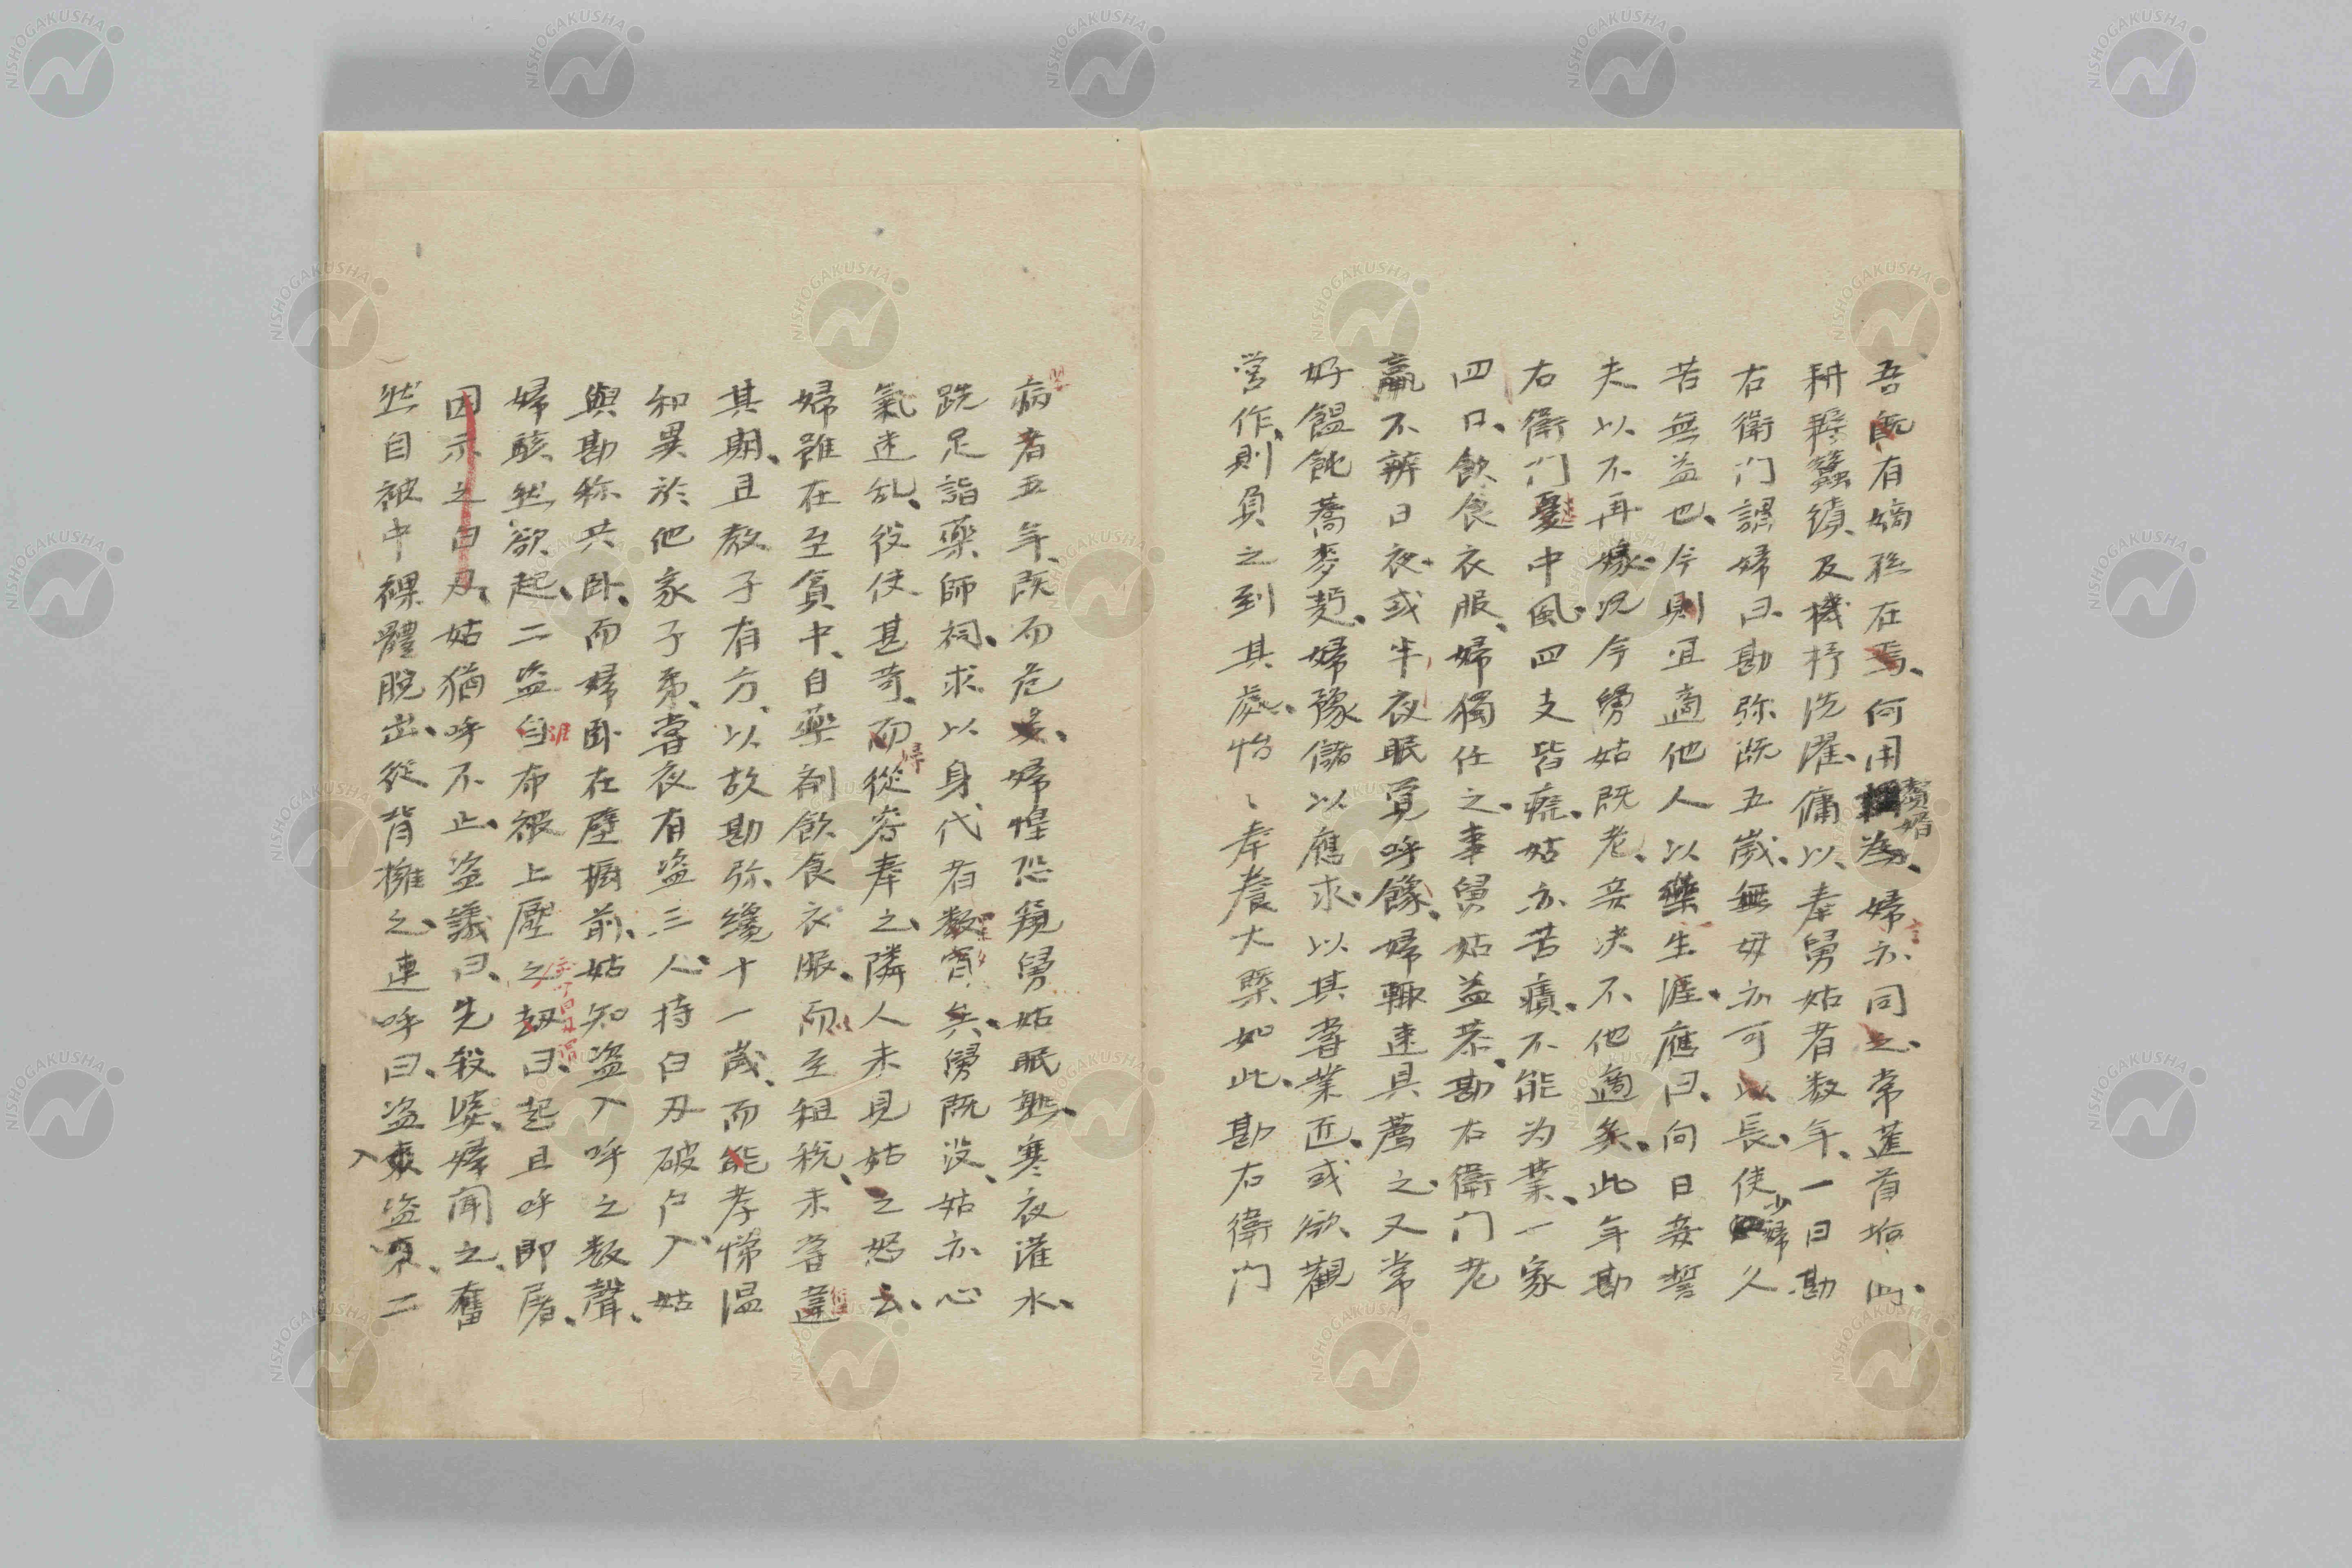 吾既有嫡孫在焉、何用贅婿為、婦亦同之、常蓬首垢面、
耕耘蠶績、及機杼洗濯、傭以奉舅姑者数年、一日勘
右衛门謂婦曰、勘弥既五歳、無母亦可以長、使少婦久
苦無益也、今則宜適他人以樂生涯、應曰、向日妾誓
夫以不再嫁、况今舅姑既老、妾决不他適矣、此年勘
右衛门憂中風、四支皆痲、姑亦苦癪、不能为業、一家
四口、飲食衣服、婦獨任之、事舅姑益恭、勘右衛门老
羸不辨日夜、或半夜眠覓呼餘、婦輙速具薦之、又常
好饂飩蕎麥麪、婦豫儲以應求、以其嘗業匠、或欲觀
営作、則負之到其處、怡〻奉養大槩如此、勘右衛门
病者五年、既而危矣、婦惶恐窺舅姑眠熟、寒夜灌水、
跣足詣藥師祠、求以身代者数宵矣、舅既没、姑亦心
氣迷乱、役使甚苛、而婦從容奉之、隣人未見姑之怒云、
婦雖在至貧中、自藥剤飲食衣服、而至租税、未嘗違
其期、且教子有方、以故勘弥纔十一歳、而能孝悌温
和異於他家子弟、嘗夜有盗三人、持白刃破户入、姑
與勘弥共臥、而婦臥在壁櫥前、姑知盗入呼之数聲、
婦駭然欲起、二盗自布被上壓之刼曰、起且呼即屠、
因示之白刃、姑猶呼不止、盗議曰、先殺婆、婦聞之、奮
然自被中裸體脱出、從背擁之、連呼曰、盗來入盗來、二